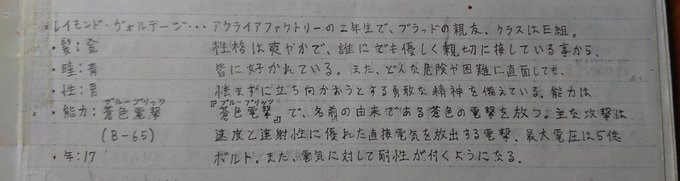 ・レイモンド・ヴォルテージ・・・ アクライアファクトリーの二年生で、ブラッドの親友。クラスはE組。
・髪：金 性格は爽やかで、誰にでも優しく親切に接している事から、
・瞳：青 皆に好かれている。また、どんな危険や困難に直面しても、
・性：男 怯まずに立ち向かおうとする勇敢な精神を備えている。能力は
ブルーブリック ブルーブリック
・能力：蒼色電撃 『蒼色電撃』で、名前の由来である蒼色の電撃を放つ。主な攻撃は、
(B-65) 速度と連射性に優れた直接電気を放出する電撃。最大電圧は5億
・年：17 ボルト。また、電気に対して耐性が付くようになる。